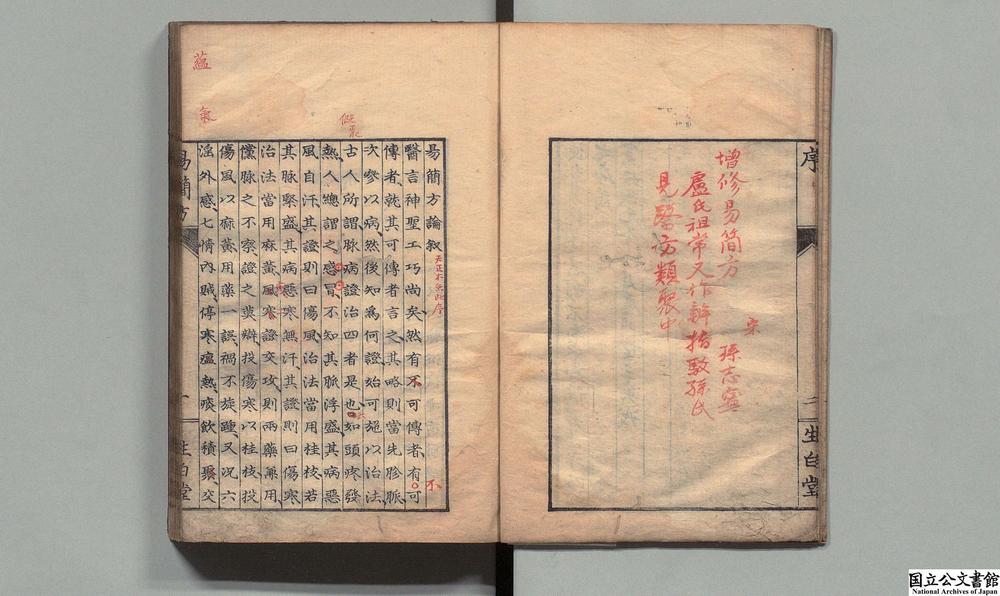 序
二
生白堂
增修易簡方
宋 孫志寧
盧氏祖常又作辨指駁孫氏
見醫方類聚中
易簡方論叙
醫言神聖工巧尚矣然有不可傳者有可
傳者就其可傳者言之其略則當先胗脈
次參以病然後知為何證始可施以治法
古人所謂脉病證治四者是也如頭疼發
熱人總謂之感冒不知其脈浮盛其病惡
風自汗其證則曰傷風治法當用桂枝若
其脉緊盛其病惡寒無汗其證則曰傷寒
治法當用麻黃風寒證交攻則兩藥兼用
儻脉之不察證之莫辨投傷寒以桂枝投
傷風以麻黃用藥一誤禍不旋踵又况六
淫外感七情內賊停寒瘟熱痰飲積聚交
易簡方
一
生白堂
不
蘊
氣
国立公文書館
National Archives of Japan